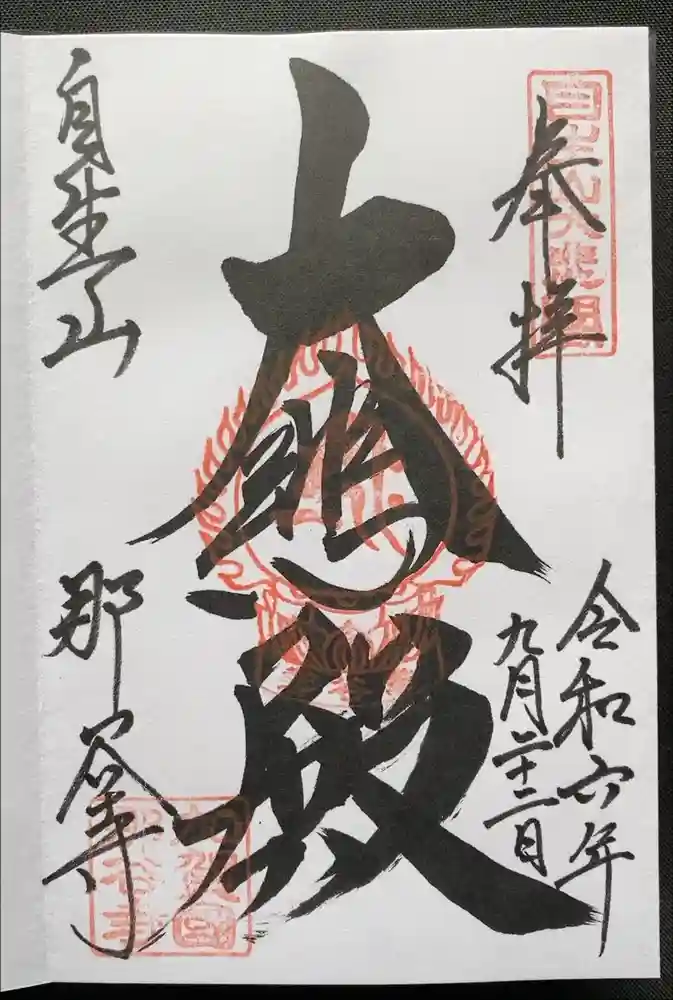 奉拝
自生山大悲閣
令和六年
九月二十二日
大悲殿
自生山
那谷寺
加賀國
那谷寺